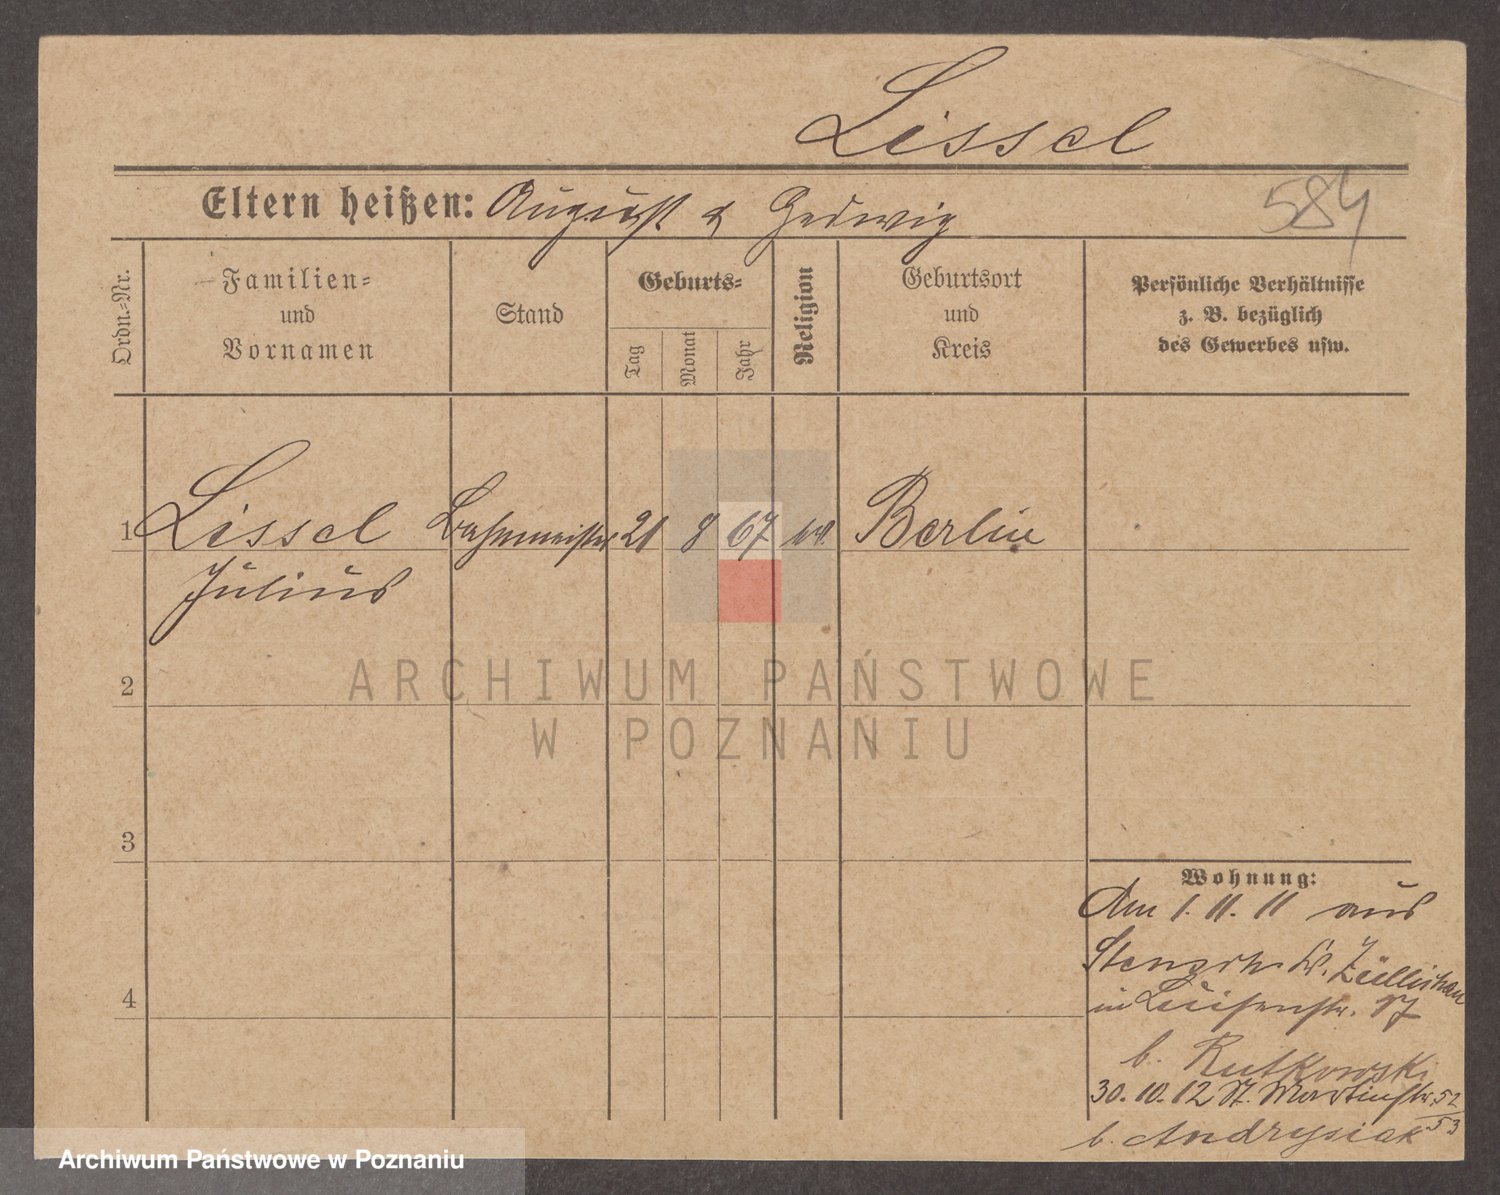 Lissel
Eltern heißen: August & Hedwig
584
Ordn.-Nr.
Familien-
und
Vornamen
Stand
Geburts-
Tag
Monat
Jahr
Religion
Geburtsort
und
Kreis
Persönliche Verhältnisse
z. B. bezüglich
des Gewerbes usw.
1 Lissel Bahnmeister 21 8 67 ev. Berlin
Julius
2
3
4
ARCHIWUM PAŃSTWOWE
W POZNANIU
Wohnung:
Am 1. 11. 11 aus
Kr. Züllichau
in Luisenstr. 17
b. Rutkowski
30. 10. 12 St. Martinstr. 52/53
b. Andrysiak
Archiwum Państwowe w Poznaniu